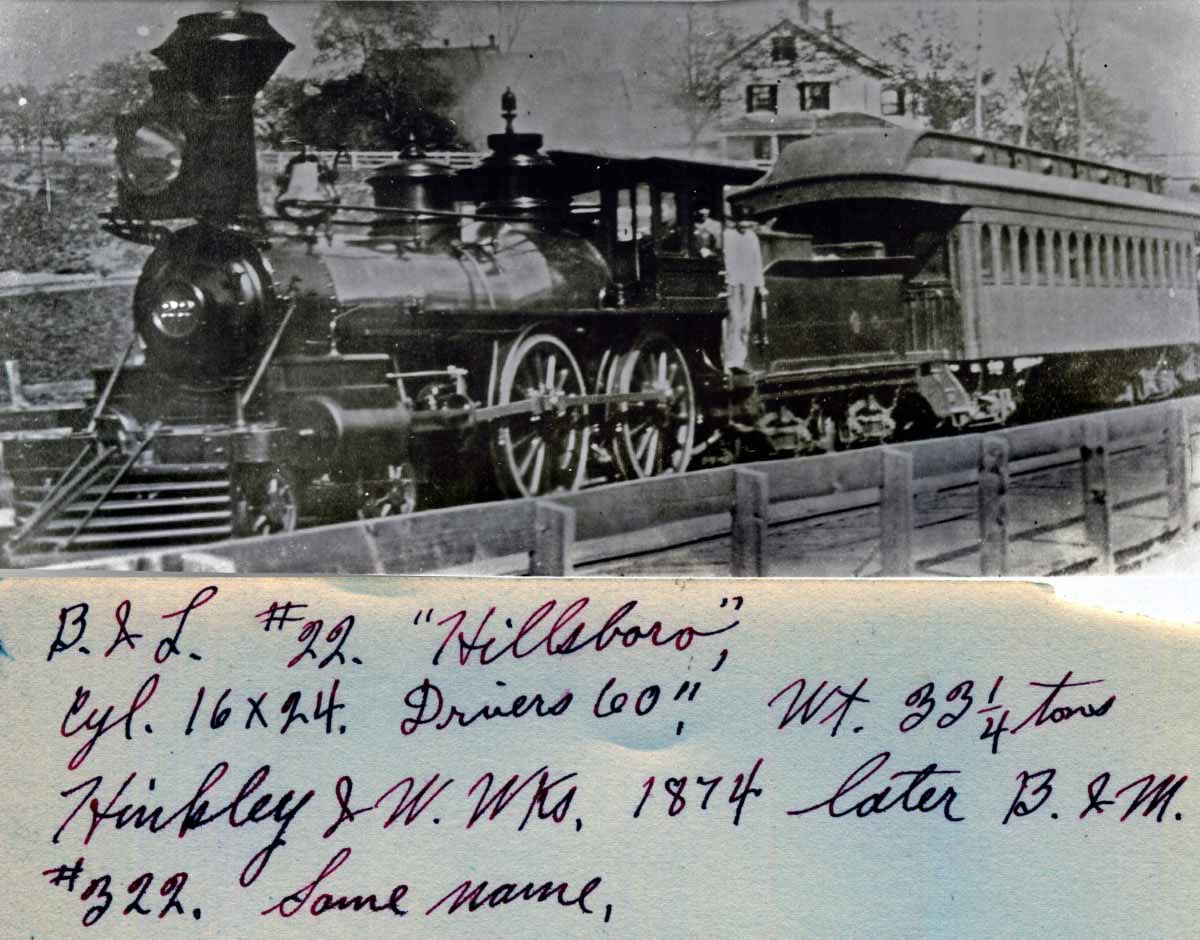 22
B. & L. #22. "Hillsboro",
Cyl. 16x24. Drivers 60", Wt. 33 1/4 tons
Hinkley & W. Wks, 1874 later B. & M.
#322. Same name,